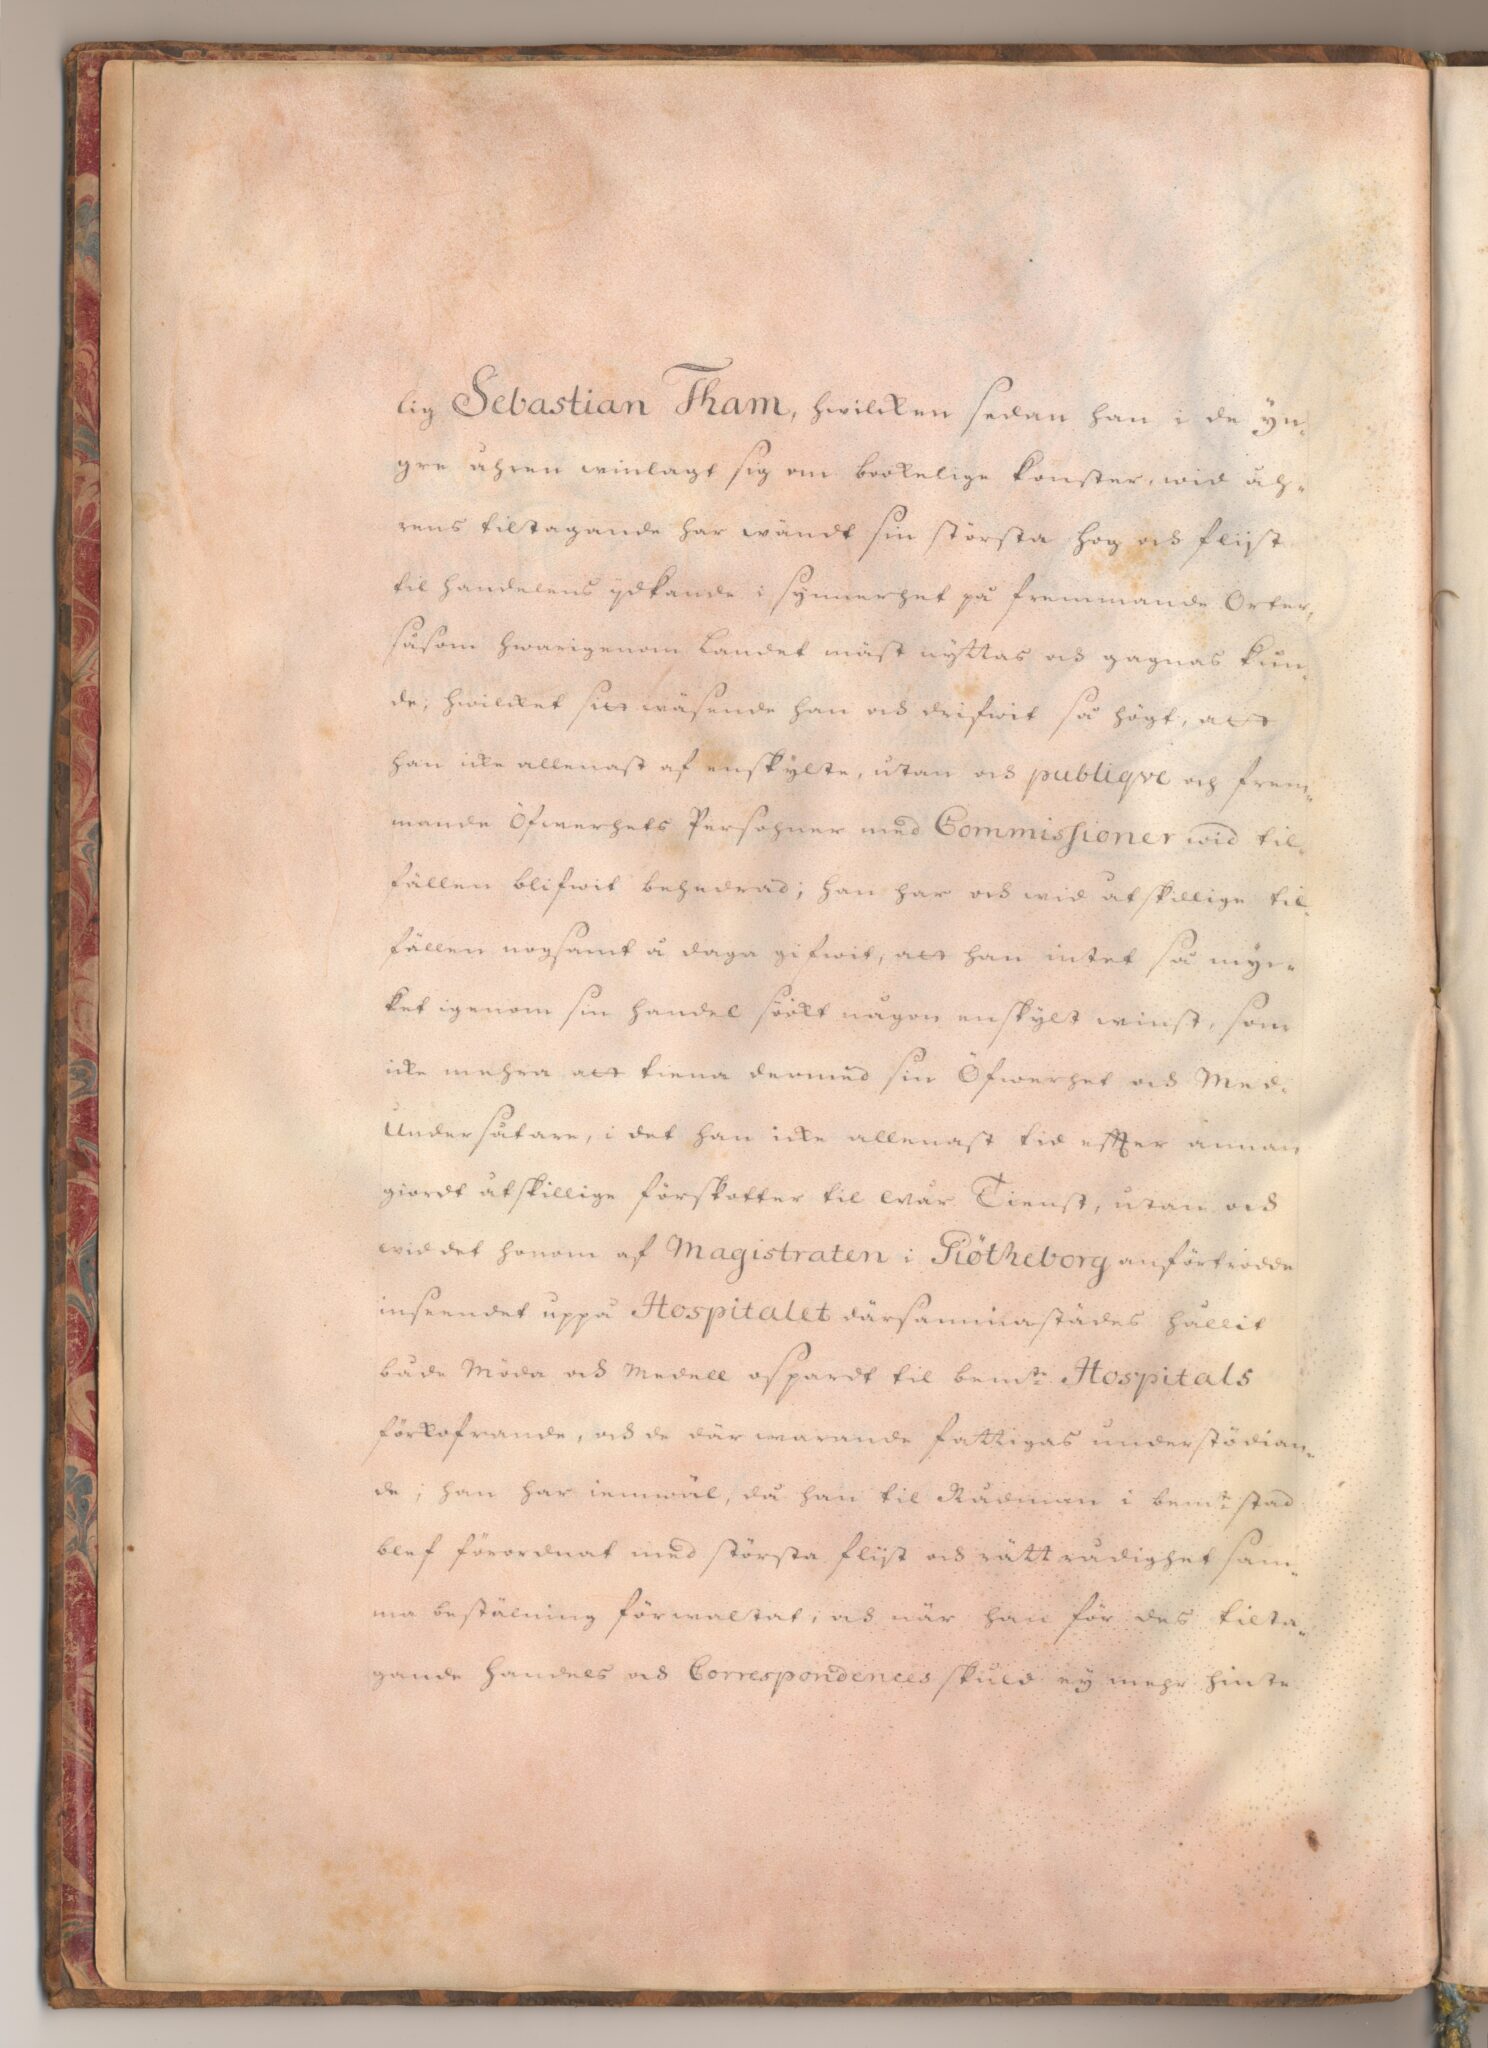 lig Sebastian Tham, hwilcken sedan han i de ÿn-
gre åhren winlagt sig om bookelige konster, wid åh-
rens tiltagande har wändt sin största hog och flijt
til handelens ydkande i synnerhet på fremmande Orter,
såsom hwarigenom Landet mäst nyttas och gagnas kun-
de; hwilcket sitt wäsende han och drifwit så högt, att
han icke allenast af enskylte, utan och publiqve och frem-
mande Öfwerhets Persohner med Commissioner wid til-
fällen blifwit behedrad; han har och wid åtskillige til-
fällen nogsamt å daga gifwit, att han intet så myc-
ket igenom sin handel söökt någon enskylt winst, som
icke mehra att tiena dermed sin Öfwerhet och Med-
Undersåtare, i det han icke allenast tid effter annan
giordt åtskillige förskotter til Wår Tienst, utan och
wid det honom af Magistraten i Giötheborg anförtrodde
inseendet uppå Hospitalet därsammastädes hållit
både Möda och Medell ospardt til bem:te Hospitals
förkofrande, och de där warande fattigas understödian-
de; han har iemwäl, då han til Rådman i bem:te stad
blef förordnat med största flijt och rättrådighet sam-
ma beställning förwaltat; och när han för des tilta-
gande handels och Correspondences skuld ey mehr hinte